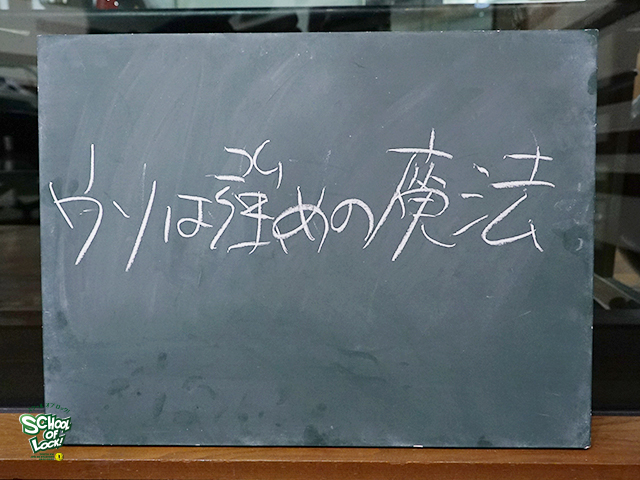 ウソは強めの魔法
SCHOOL
OF
LOCK!